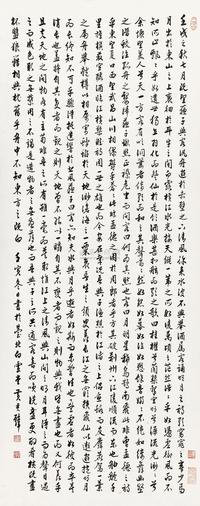 壬戌之秋七月既望蘇子與客泛舟遊於赤壁之下清風徐來水波不興舉酒屬客誦明月之詩歌窈窕之章少焉
月出於東山之上徘徊於斗牛之間白露橫江水光接天縱一葦之所如凌萬頃之茫然浩浩乎如馮虛御風而不
知其所止飄飄乎如遺世獨立羽化而登仙於是飲酒樂甚扣舷而歌之歌曰桂棹兮蘭槳擊空明兮泝流光渺渺兮
余懷望美人兮天一方客有吹洞簫者倚歌而和之其聲嗚嗚然如怨如慕如泣如訴餘音嫋嫋不絕如縷舞幽壑之
潛蛟泣孤舟之嫠婦蘇子愀然正襟危坐而問客曰何為其然也客曰月明星稀烏鵲南飛此非曹孟德之詩
乎西望夏口東望武昌山川相繆鬱乎蒼蒼此非孟德之困於周郎者乎方其破荊州下江陵順流而東也舳艫千
里旌旗蔽空釃酒臨江橫槊賦詩固一世之雄也而今安在哉況吾與子漁樵於江渚之上侶魚蝦而友麋鹿駕一葉
之扁舟舉匏樽以相屬寄蜉蝣於天地渺滄海之一粟哀吾生之須臾羨長江之無窮挾飛仙以遨遊抱明月
而長終知不可乎驟得託遺響於悲風蘇子曰客亦知夫水與月乎逝者如斯而未嘗往也盈虛者如彼而卒莫
消長也蓋將自其變者而觀之則天地曾不能以一瞬自其不變者而觀之則物與我皆無盡也而又何羨乎
且夫天地之間物各有主苟非吾之所有雖一毫而莫取惟江上之清風與山間之明月耳得之而為聲目遇
之而成色取之無禁用之不竭是造物者之無盡藏也而吾與子之所共適客喜而笑洗盞更酌肴核既盡
杯盤狼籍相與枕藉乎舟中不知東方之既白 壬寅冬日書於臺北白雲堂黃君璧